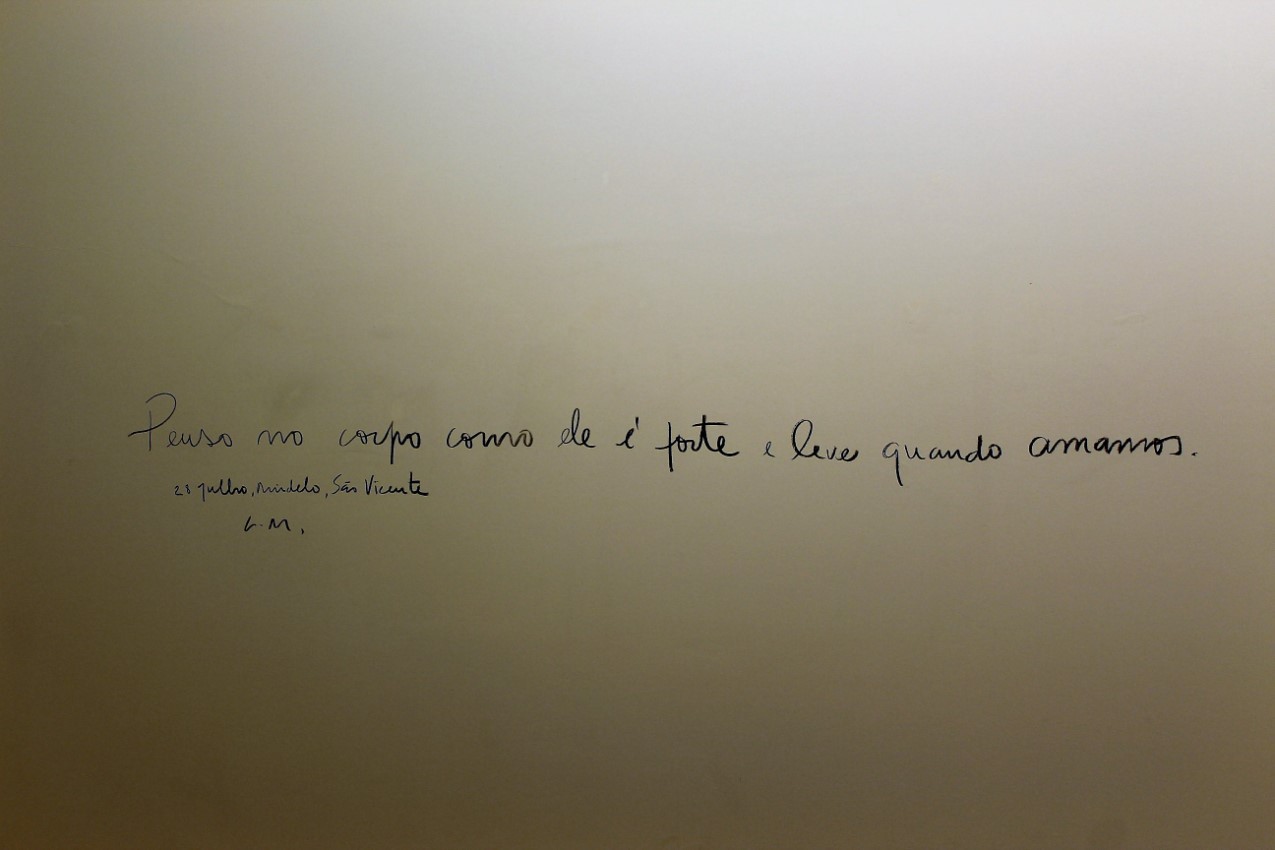 Penso no corpo como ele é forte e leve quando amamos.
28 julho, mindelo, São Vicente
L.M.